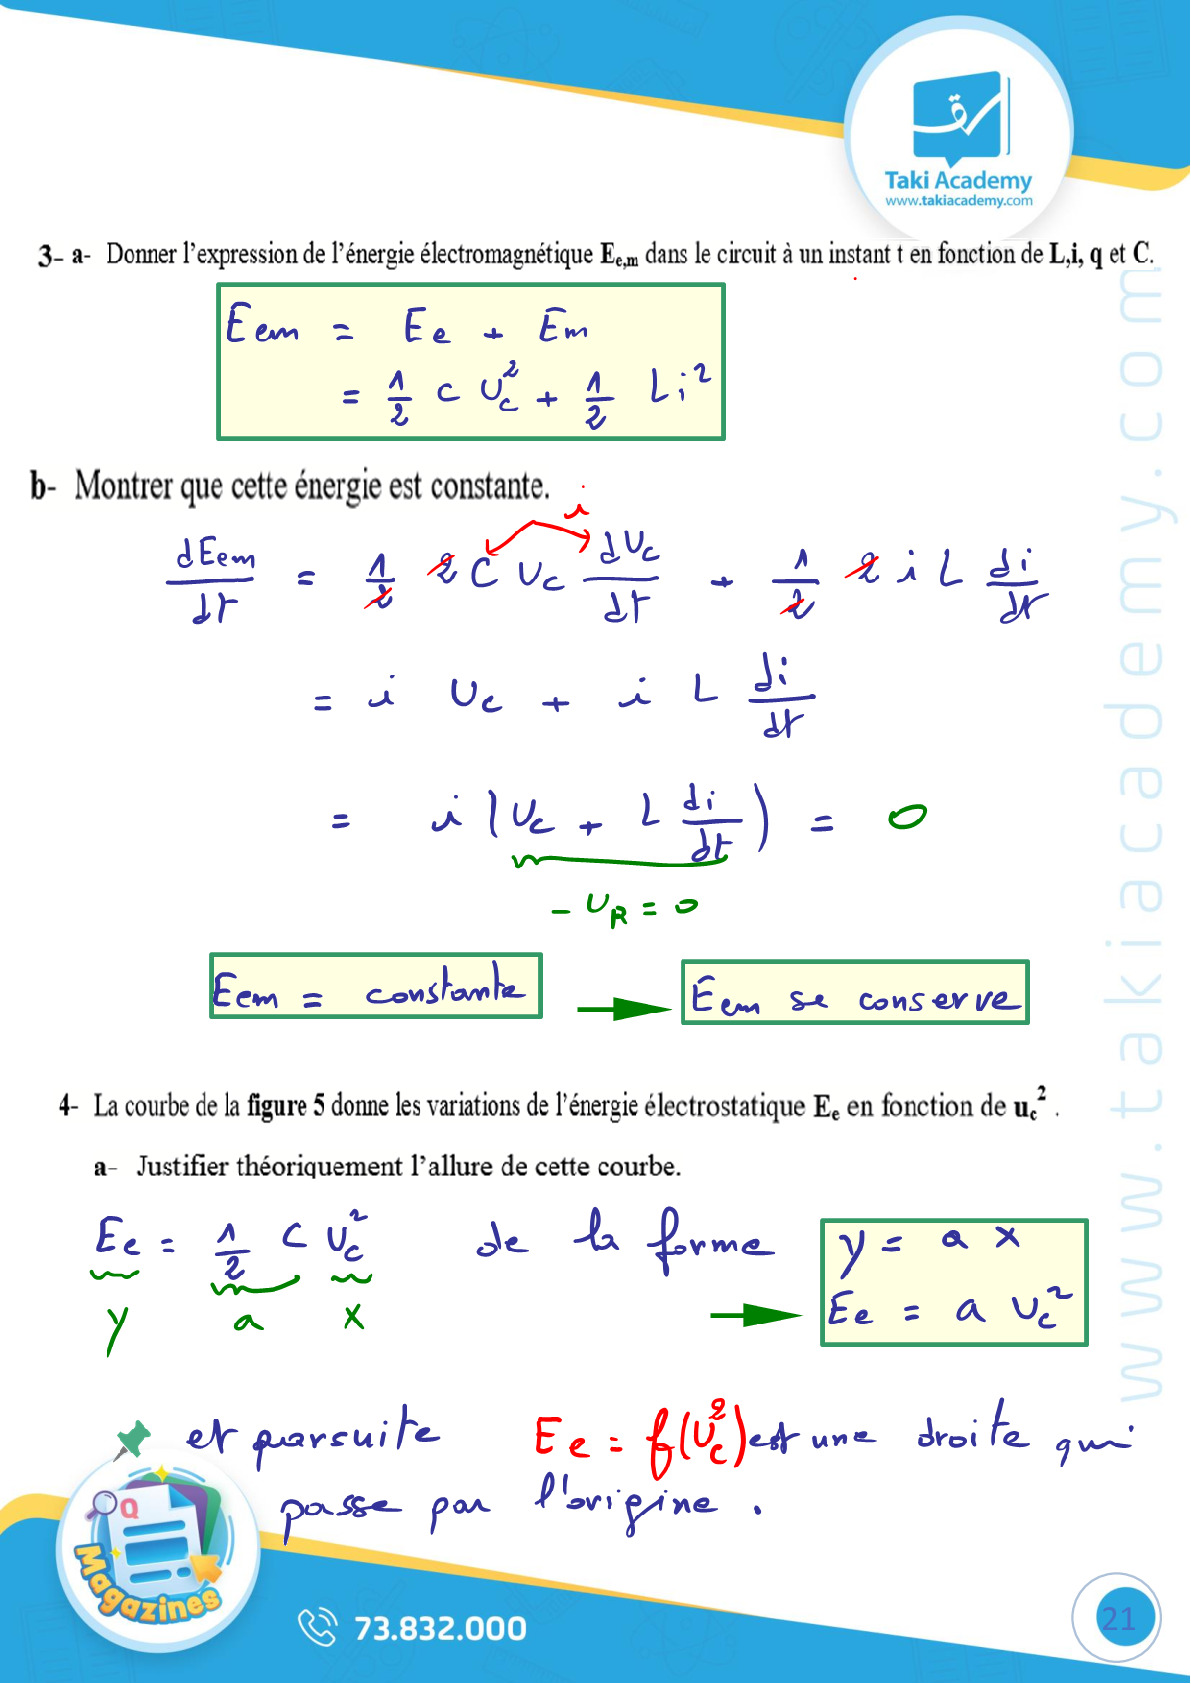 Taki Academy
www.takiacademy.com
3- a- Donner l'expression de l'énergie électromagnétique Ee,m dans le circuit à un instant t en fonction de L,i, q et C.
Eem = Ee + Em
= 1/2 C Uc² + 1/2 L i²
b- Montrer que cette énergie est constante.
i
dEem/dt = 1/2 2 C Uc dUc/dt + 1/2 2 i L di/dt
= i Uc + i L di/dt
= i (Uc + L di/dt) = 0
- UR = 0
Eem = constante
Eem se conserve
4- La courbe de la figure 5 donne les variations de l'énergie électrostatique Ee en fonction de uc² .
a- Justifier théoriquement l'allure de cette courbe.
Ee = 1/2 C Uc² de la forme y = a x
y a x
Ee = a Uc²
et parsuite Ee = f(Uc²) est une droite qui
passe par l'origine .
www.takiacademy.com
Q
Magazines
73.832.000
21